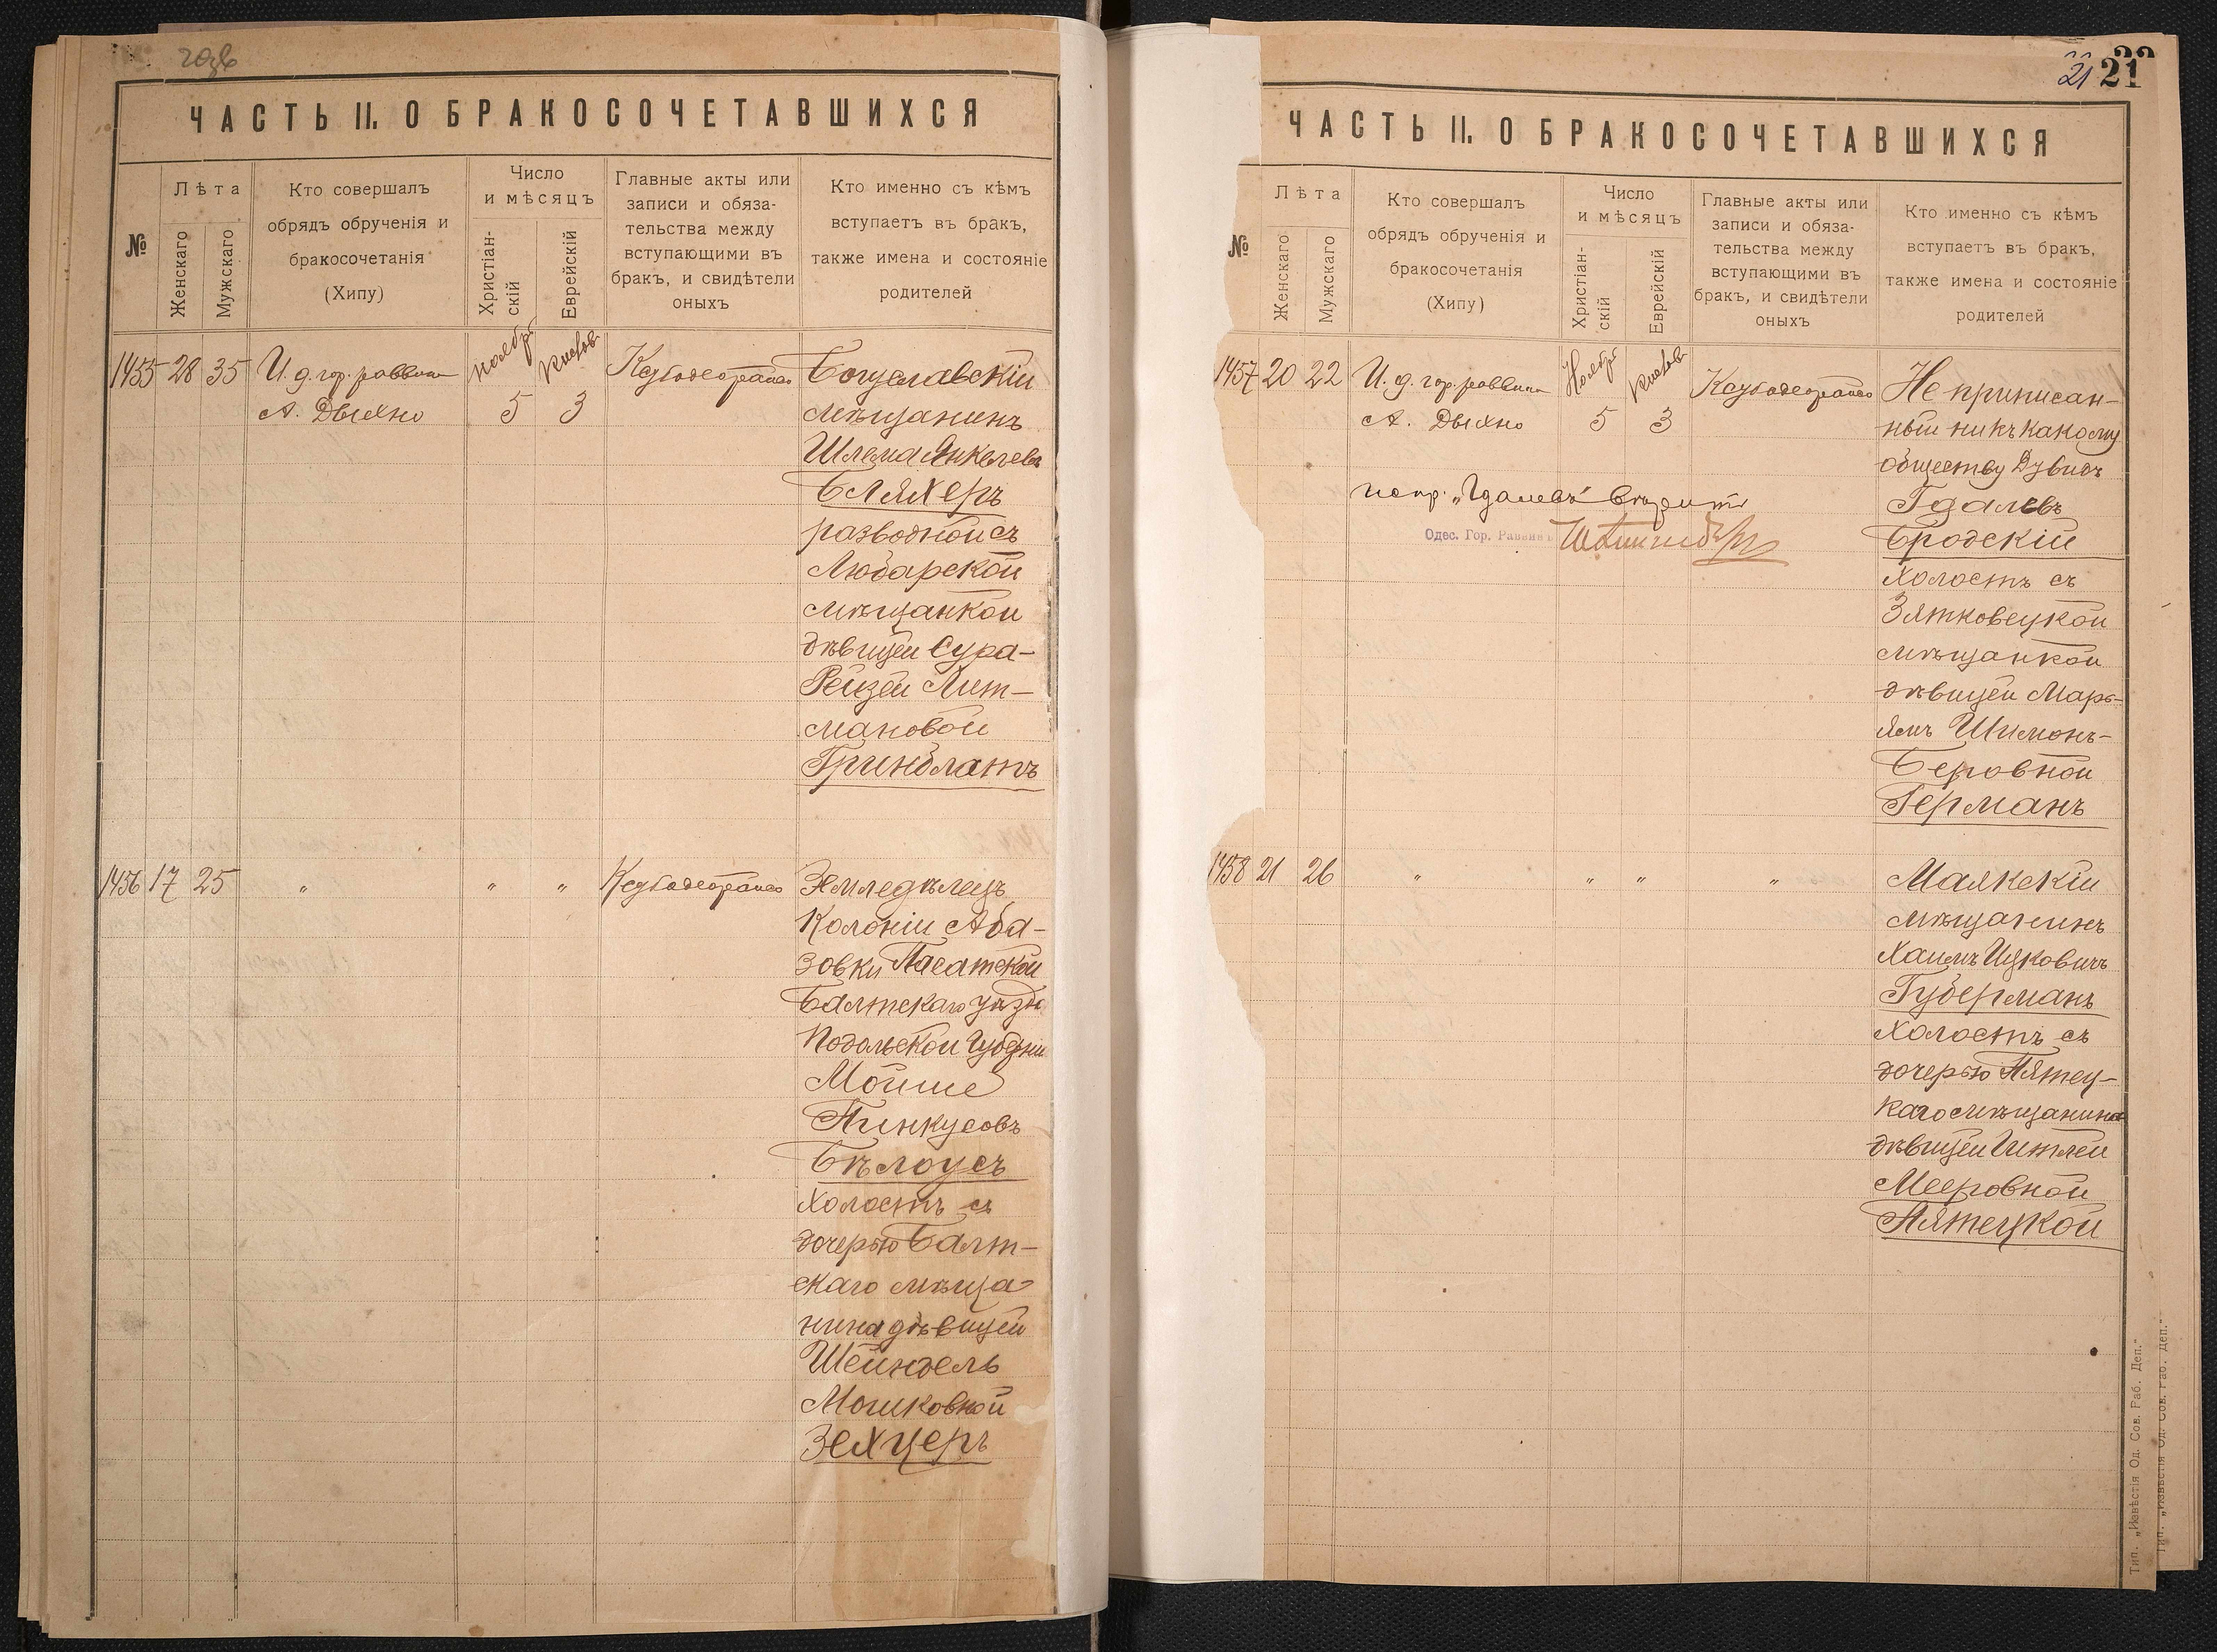 ЧАСТЬ II. О БРАКОСОЧЕТАВШИХСЯ
№
Лѣта
Женскаго
Мужскаго
Кто совершалъ
обрядъ обрученія и
бракосочетанія
(Хипу)
Число
и мѣсяцъ
Христіан-
скій
Еврейскій
Главные акты или
записи и обяза-
тельства между
вступающими въ
бракъ, и свидѣтели
оныхъ
Кто именно съ кѣмъ
вступаетъ въ бракъ,
также имена и состояніе
родителей
1455 28 35 И. д. гор. раввина
А. Дыхно
Ноября
5
Кислов
3
Богуславскій
мѣщанинъ
Шлема Янкелевъ
Бляхеръ
разводной съ
Любарской
мѣщанкой
дѣвицей Сура-
Рейзей Лит-
мановой
Гринблатъ
1456 17 25 " " "
Земледѣлецъ
Колоніи Аба-
зовки Пасатской
Балтскаго уѣзда
Подольской губерніи
Мойше
Пинкусовъ
Бѣлоусъ
холостъ съ
дочерью Балт-
скаго мѣща-
нина дѣвицей
Шейндель
Мошковной
Зехцеръ
21 21
22
ЧАСТЬ II. О БРАКОСОЧЕТАВШИХСЯ
№
Лѣта
Женскаго
Мужскаго
Кто совершалъ
обрядъ обрученія и
бракосочетанія
(Хипу)
Число
и мѣсяцъ
Христіан-
скій
Еврейскій
Главные акты или
записи и обяза-
тельства между
вступающими въ
бракъ, и свидѣтели
оныхъ
Кто именно съ кѣмъ
вступаетъ въ бракъ,
также имена и состояніе
родителей
1457 20 22 И. д. гор. раввина
А. Дыхно
Ноября
5
Кислов
3
испр. „Гдалевъ" вѣрить
Одес. Гор. Раввинъ
Не приписан-
ный ни къ какому
обществу Дувидъ
Гдалевъ
Бродскій
холостъ съ
Зятковецкой
мѣщанкой
дѣвицей Марь-
ямъ Шимонъ-
Беровной
Германъ
1458 21 26 " " " "
Маякскій
мѣщанинъ
Хаимъ Ицковичъ
Губерманъ
холостъ съ
дочерью Пятец-
каго мѣщанина
дѣвицей Гитлей
Мееровной
Пятецкой
Тип. „Извѣстія Од. Сов. Раб. Деп."
Тип. „Извѣстія Од. Сов. Раб. Деп."